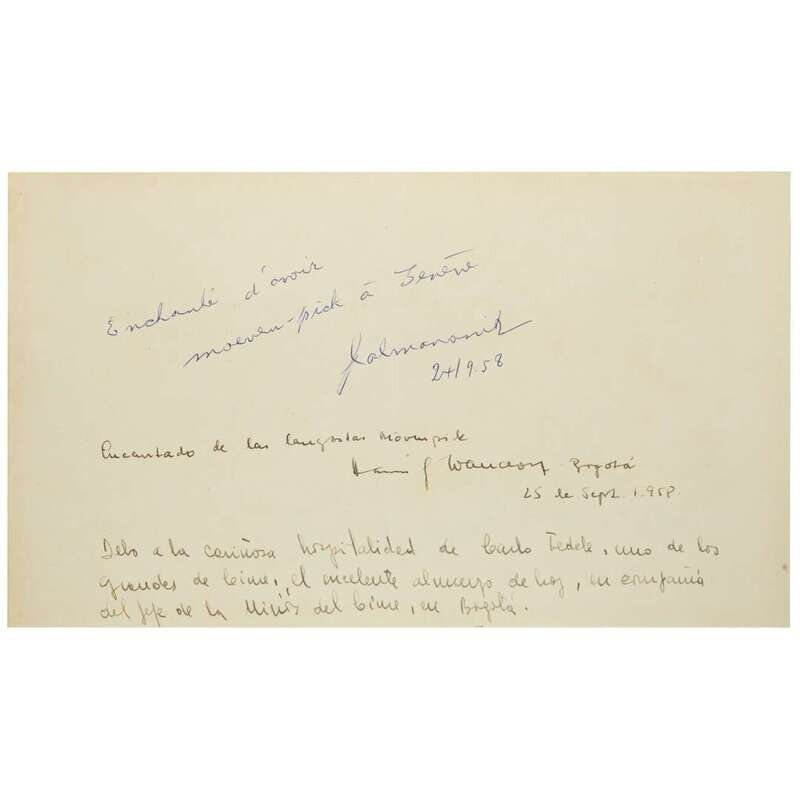 Enchanté d'avoir
moeven-pick à Genève
24/9.58
Encantado de las langostas Mövenpick
Bogotá
25 de Sept. 1.958
Debo a la cariñosa hospitalidad de Carlo Fedele, uno de los
grandes de Cime, el excelente almuerzo de hoy, en compañía
del jefe de la Misión del Cime, en Bogotá.